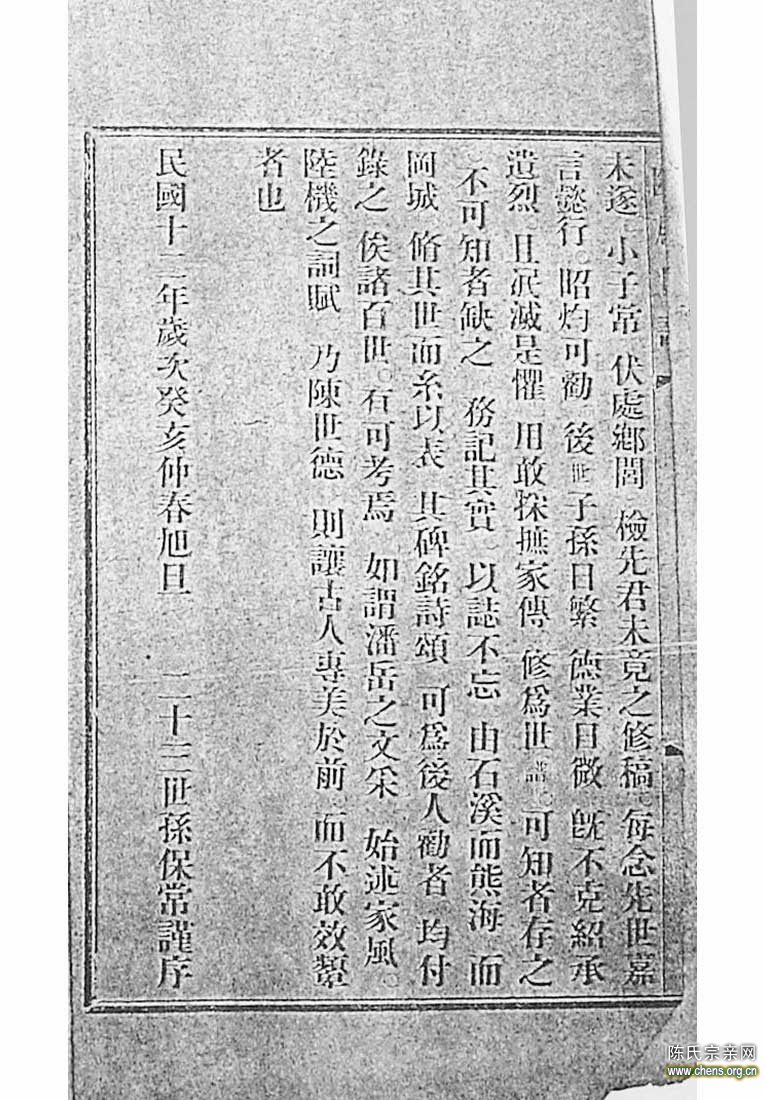 未遂。小子常、伏處鄉閭、檢先君未竟之修稿。每念先世嘉
言懿行。昭灼可勸、後世子孫日繁、德業日微、旣不克紹承
遺烈。且泯滅是懼、用敢探摭家傳、修爲世譜。可知者存之、
不可知者缺之、務記其實、以誌不忘、由石溪而熊海、而
岡城、脩其世而系以表、其碑銘詩頌、可爲後人勸者、均付
錄之、俟諸百世。有可考焉、如謂潘岳之文采、始述家風。
陸機之詞賦、乃陳世德、則讓古人專美於前。而不敢效顰
者也
民國十二年歲次癸亥仲春旭旦　二十三世孫保常謹序
陈氏宗亲网
www.chens.org.cn